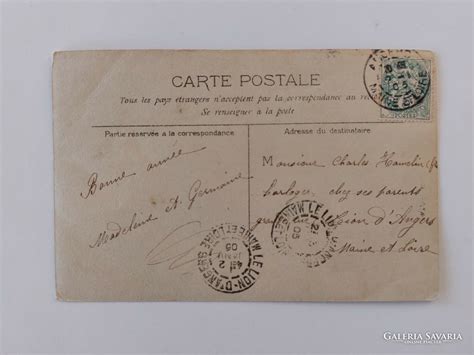 CARTE POSTALE
Tous les pays étrangers n'acceptent pas la correspondance au
Se renseigner à la poste
Partie réservée à la correspondance
Adresse du destinataire
Bonne année
Madeleine et Germaine
Monsieur Charles
horloger, chez ses parents
Lion d'Angers
Maine et Loire
LE LION-D'ANGERS
MAINE ET LOIRE
05
LE LION-D'ANGERS
05
GALERIA SAVARIA